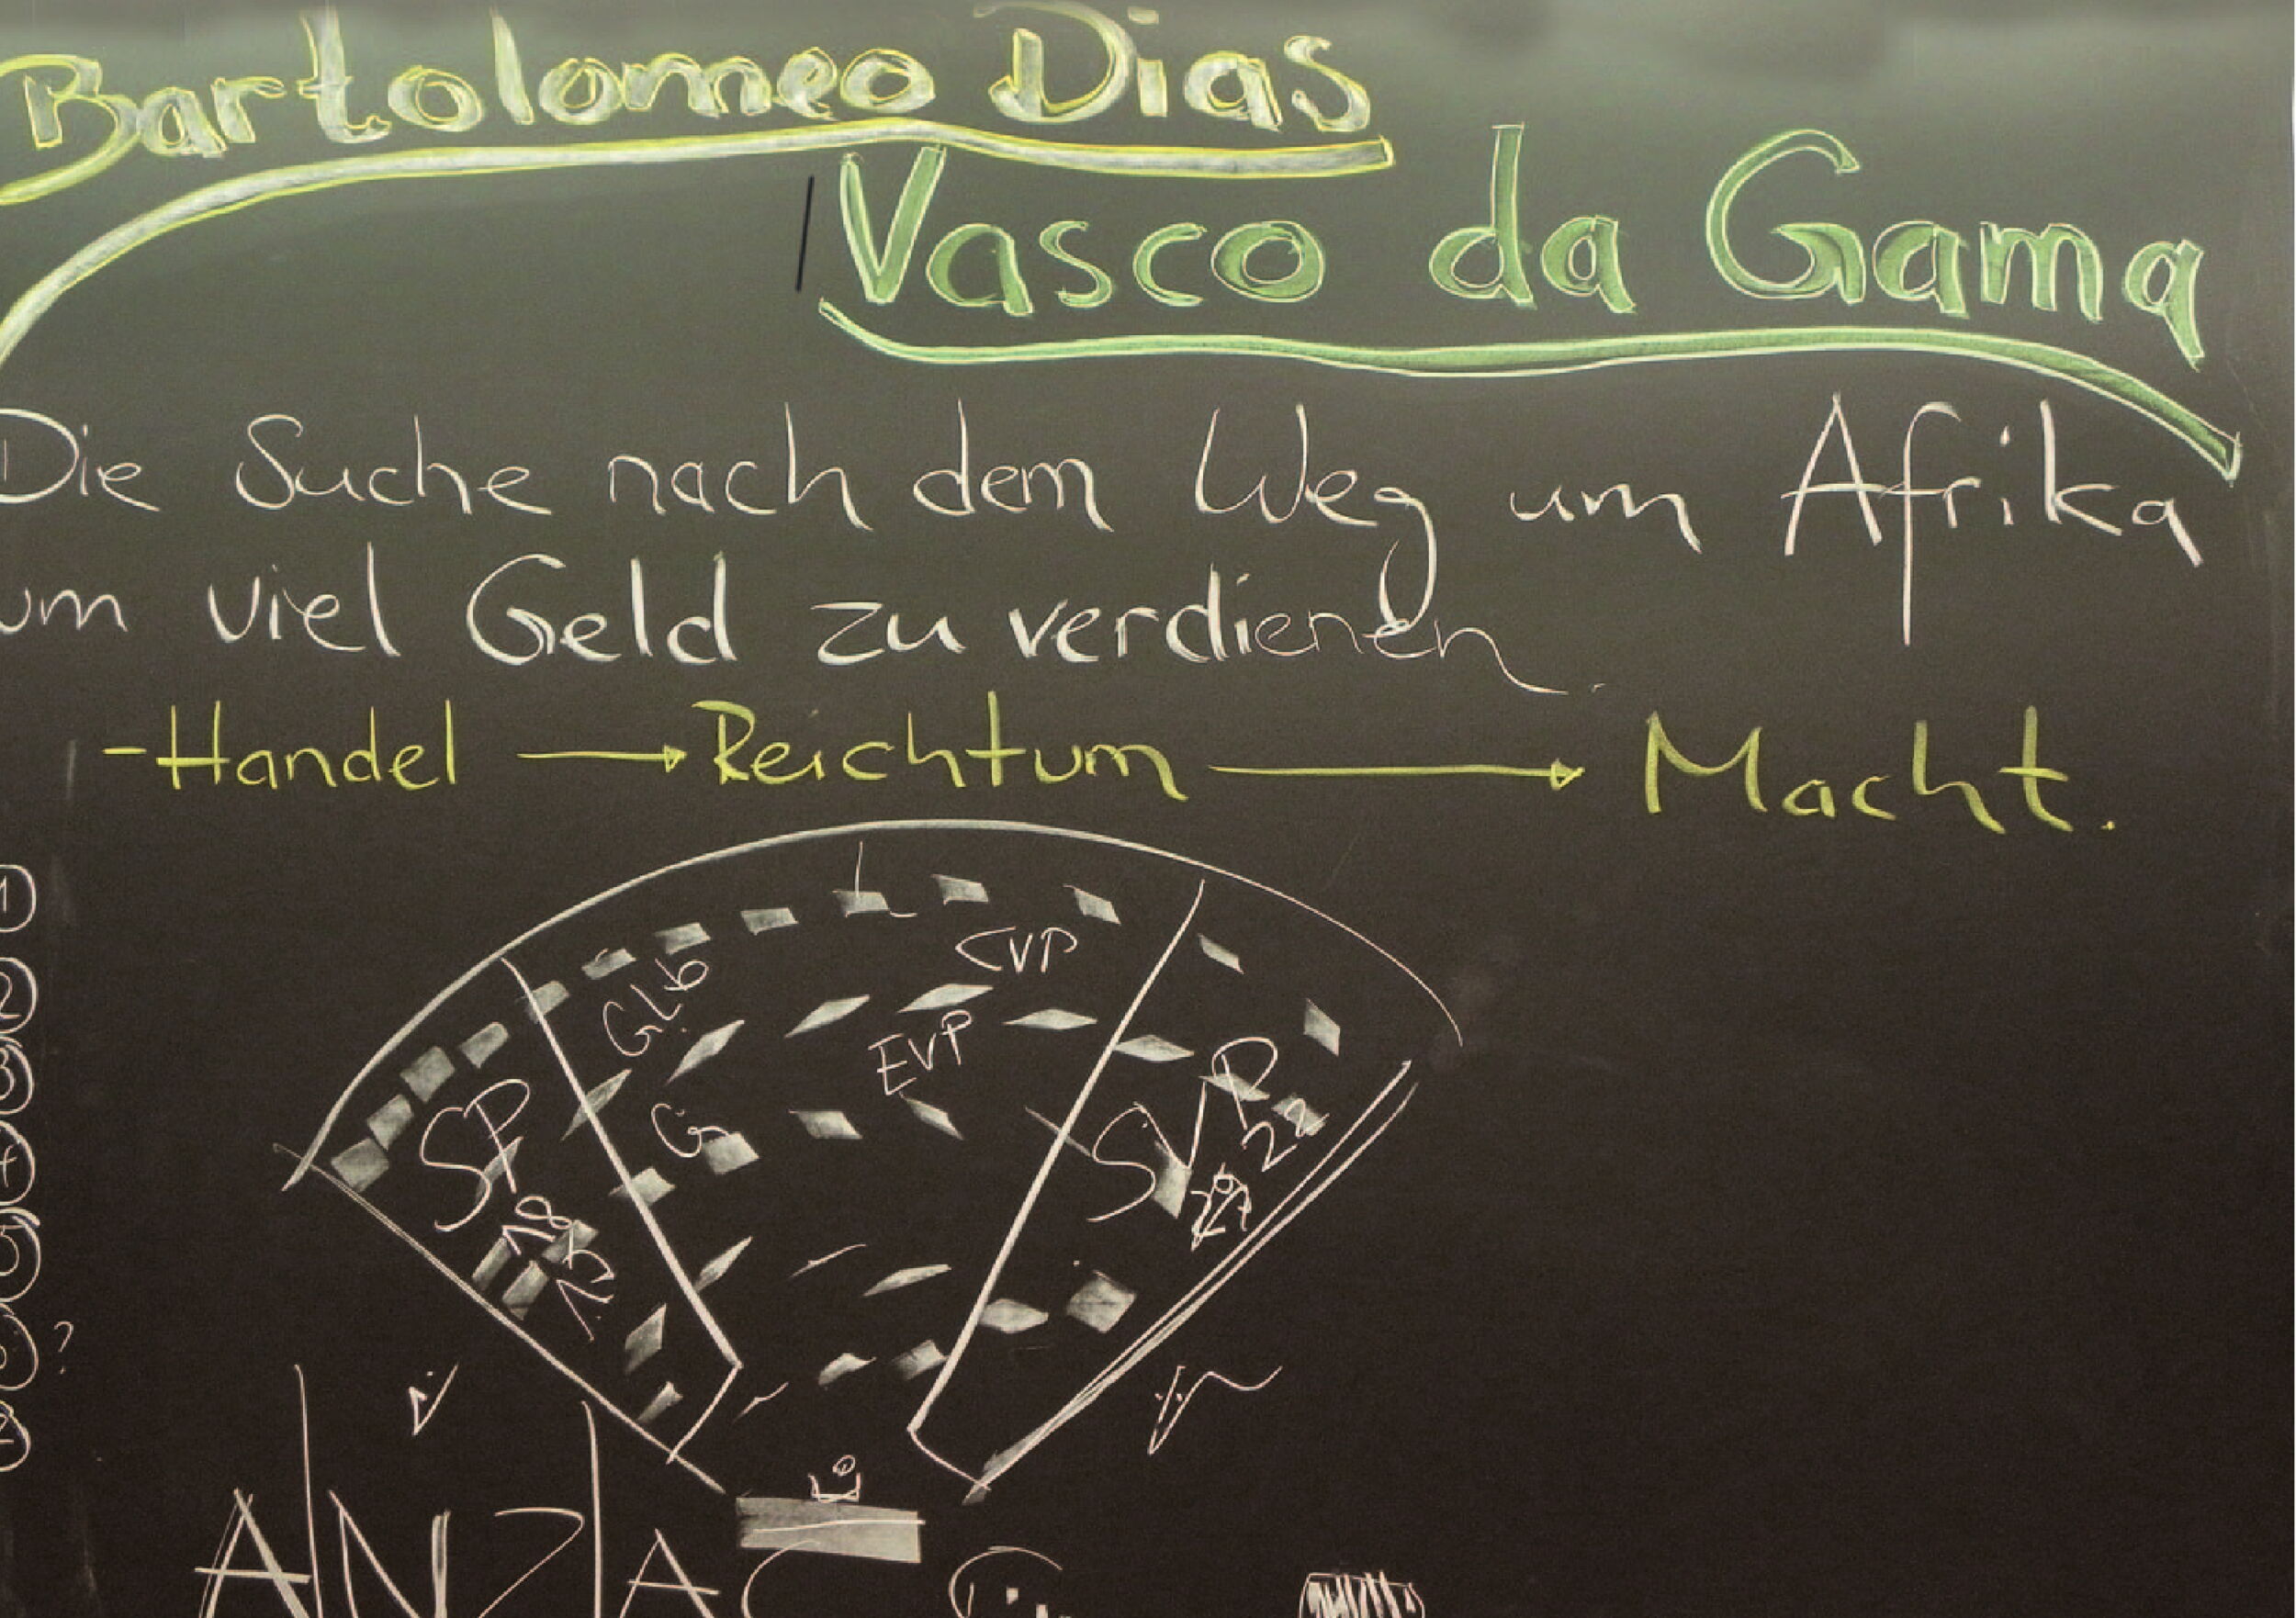 Bartolomeo Dias
Vasco da Gama
Die Suche nach dem Weg um Afrika
um viel Geld zu verdienen.
-Handel → Reichtum → Macht.
1
2
3
GLb
CVP
EVP
G
SP
18
SVP
28
?